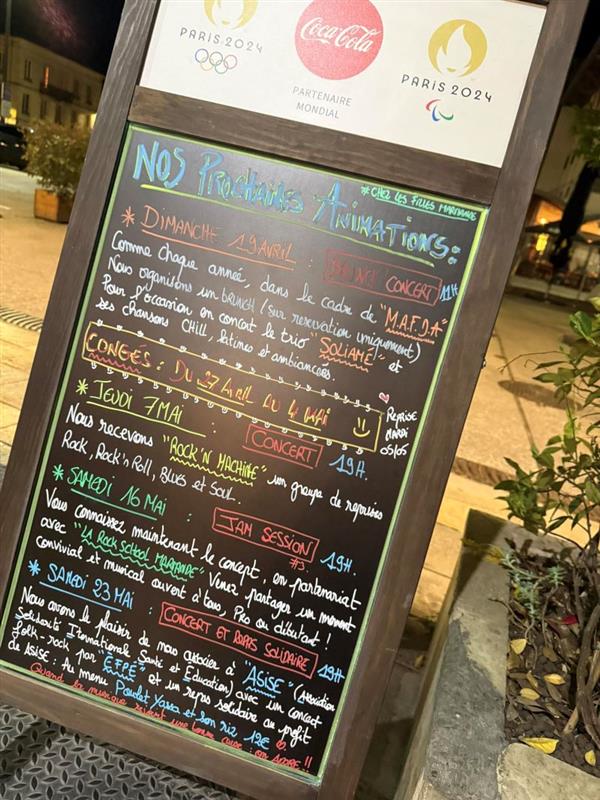 PARIS 2024
Coca-Cola
PARTENAIRE
MONDIAL
PARIS 2024
NOS PROCHAINES ANIMATIONS :
* CHEZ LES FILLES MARMANDE
* DIMANCHE 19 AVRIL : BRUNCH CONCERT 11H
Comme chaque année, dans le cadre de "M.A.F.D.A"
Nous organisons un BRUNCH (sur reservation uniquement)
Pour l'occasion en concert le trio "SOLIAMÉ" et
ses chansons CHILL, latines et ambiancées.
CONGÉS : DU 27 AVRIL AU 4 MAI
REPRISE
MARDI
05/05
* JEUDI 7 MAI : CONCERT 19H.
Nous recevons "ROCK'N MACHINE" un groupe de reprises
Rock, Rock'n Roll, Blues et Soul.
* SAMEDI 16 MAI : JAM SESSION #3 19H.
Vous connaissez maintenant le concept, en partenariat
avec "LA ROCK SCHOOL MARMANDE" Venez partager un moment
convivial et musical ouvert à tous, Pro ou débutant !
* SAMEDI 23 MAI : CONCERT ET REPAS SOLIDAIRE 19H
Nous avons le plaisir de nous associer à "ASISE" (Association
Solidarité Internationale Santé et Education) avec un concert
folk-rock par "E.F.P.É" et un repas solidaire au profit
de Asise. Au menu Poulet Yassa et son riz 12€
Quand la musique rejoint une bonne cause : on ADORE..!!